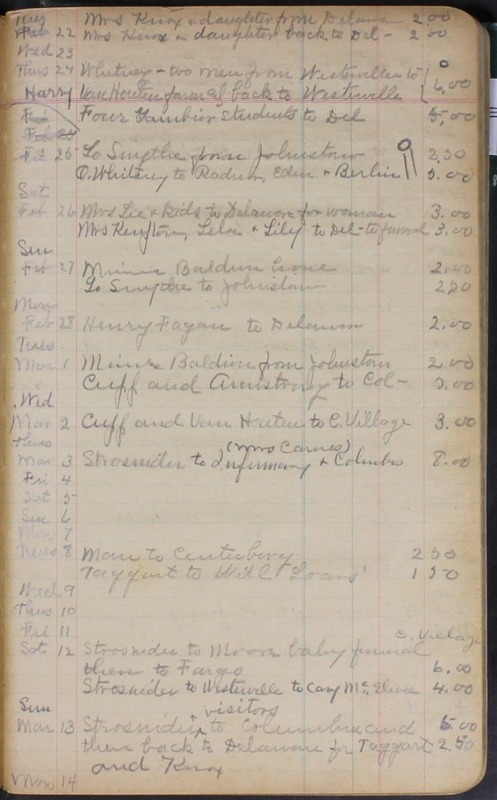 Tues Mrs Knox & daughter from Delaware 2.00
Feb 22 Mrs Knox & daughter back to Del- 2 00
Wed 23
Thus 24 Whitney - two men from Westerville to
Harry Van Houten farm & back to Westerville 6,00
Four Gambier Students to Del 5,00
Fri 25 Lo Smythe from Johnstown 2,50
O. Whitney to Radnor, Eden & Berlin 5.00
Sat
Feb 26 Mrs Lee & Kids to Delaware for woman 3.00
Mrs , Lela & Lily to Del- to funeral 3,00
Sun
Feb 27 Miner Baldwin home 2.00
Lo Smythe to Johnstown 2,50
Mon
Feb 28 Henry Fagan to Delaware 2.00
Tues
Mar 1 Miner Baldwin from Johnstown 2.00
Cuff and Armstrong to Col- 3.00
Wed
Mar 2 Cuff and Van Houten to C. Village 3.00
Thus
(Mrs Carnes)
Mar 3 Strosnider to Infirmary & Columbus 8.00
Fri 4
Sat 5
Sun 6
Mon 7
Tues 8 Man to Centerberg 2 50
Taggart to Will Loans' 1 50
Wed 9
Thus 10
Fri 11
C. Village
Sat 12 Strosnider to Moore baby funeral
then to Fargo 6.00
Strosnider to Westerville to Cary 4.00
Sun visitors
Mar 13 Strosnider to Columbus and 5.00
then back to Delaware for Taggart 2.50
and Knox
Mon 14